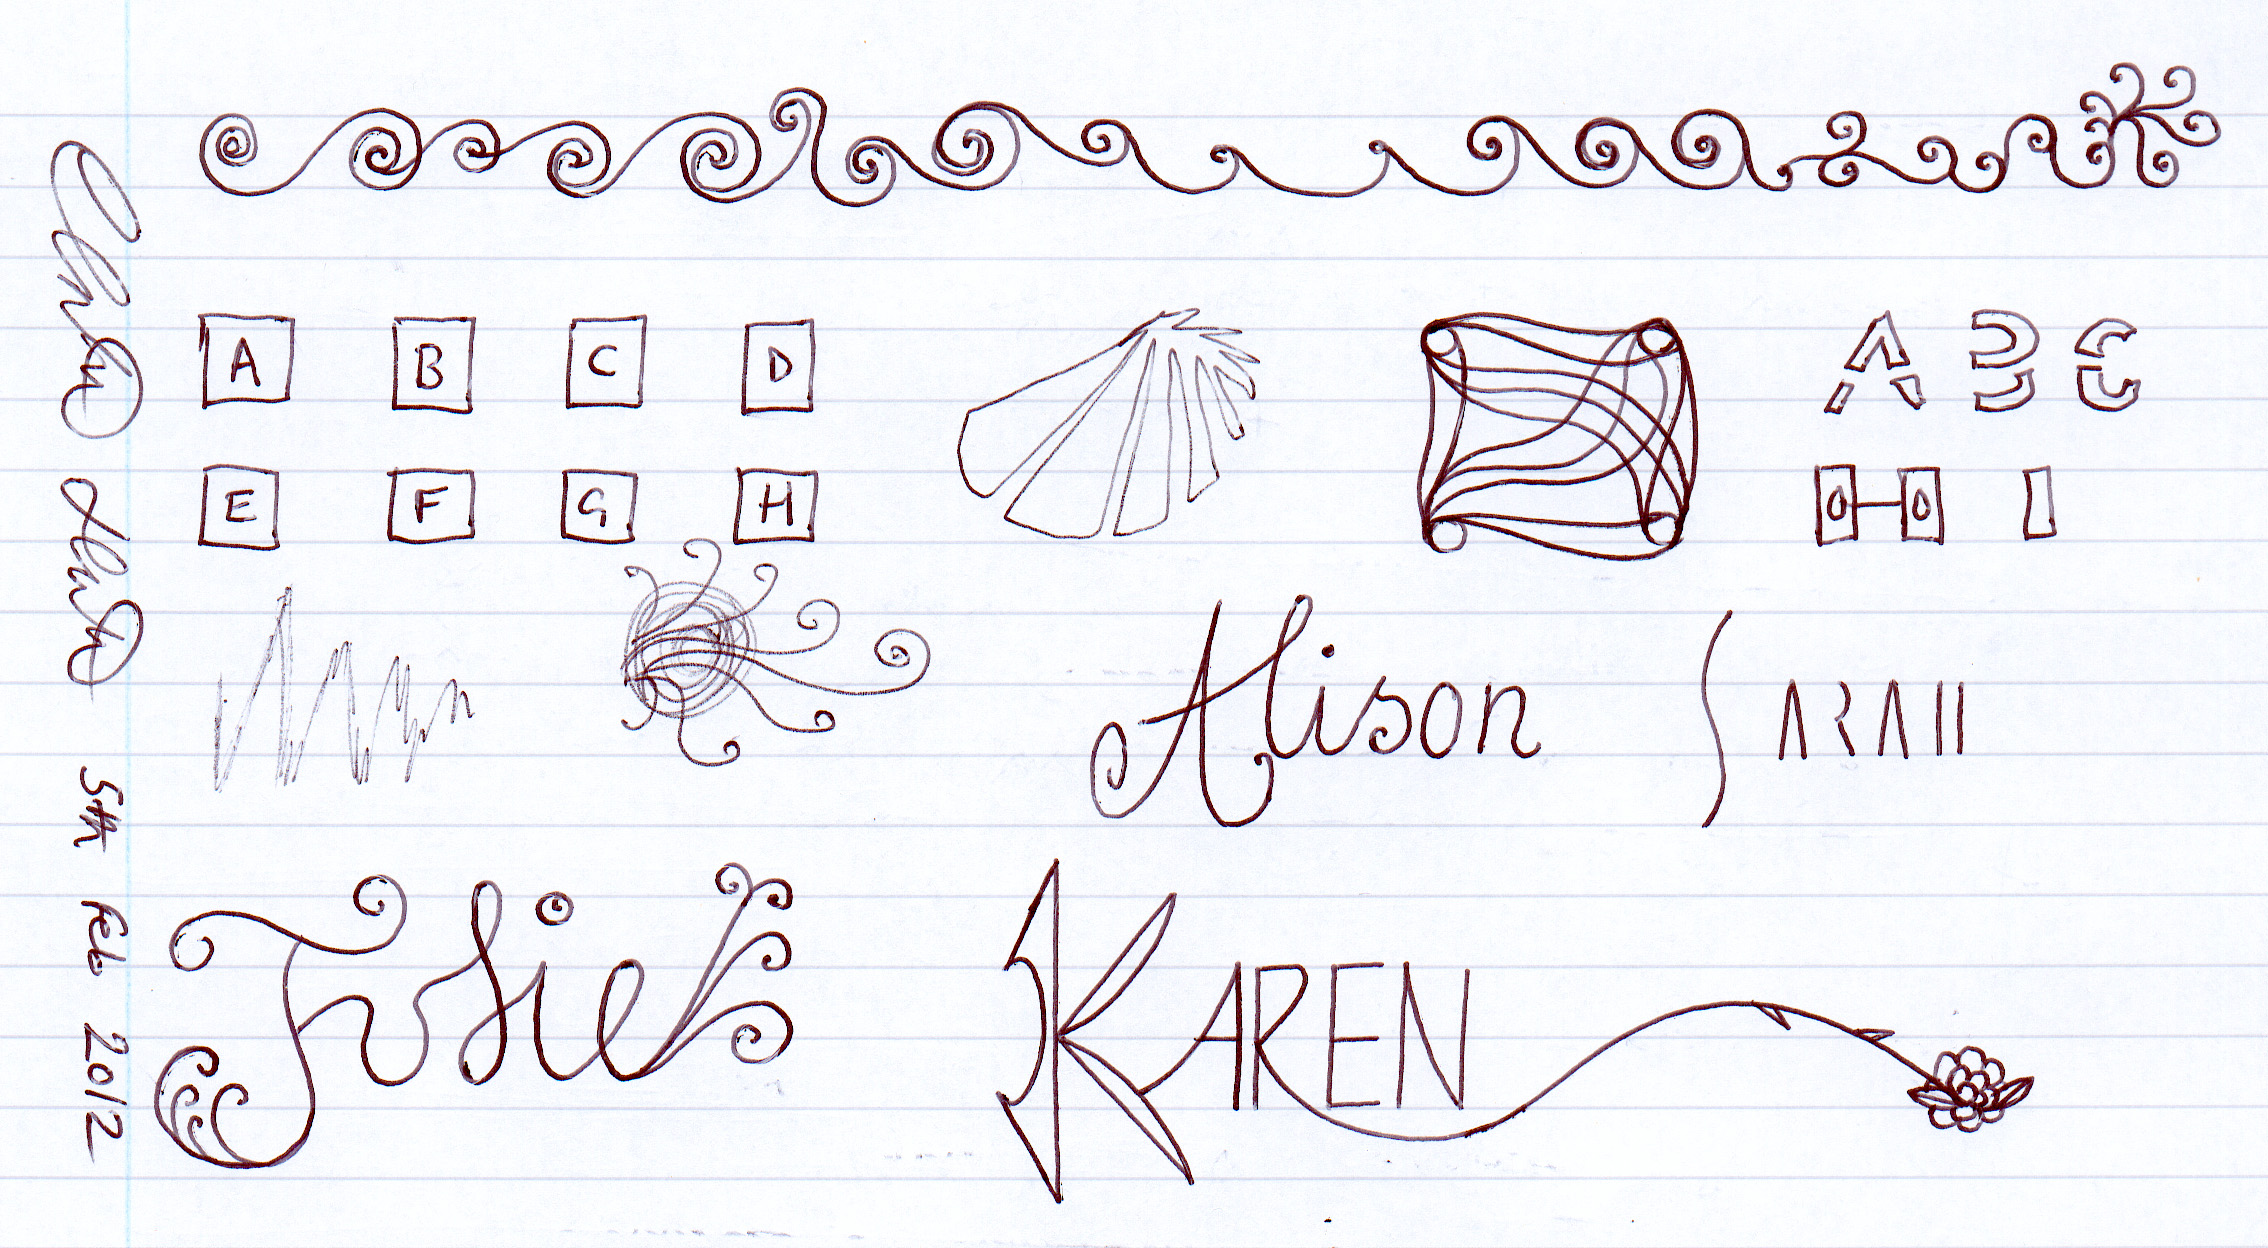 A B C D
A B C
E F G H
Alison
SARAH
Julie
KAREN
5th Feb 2012